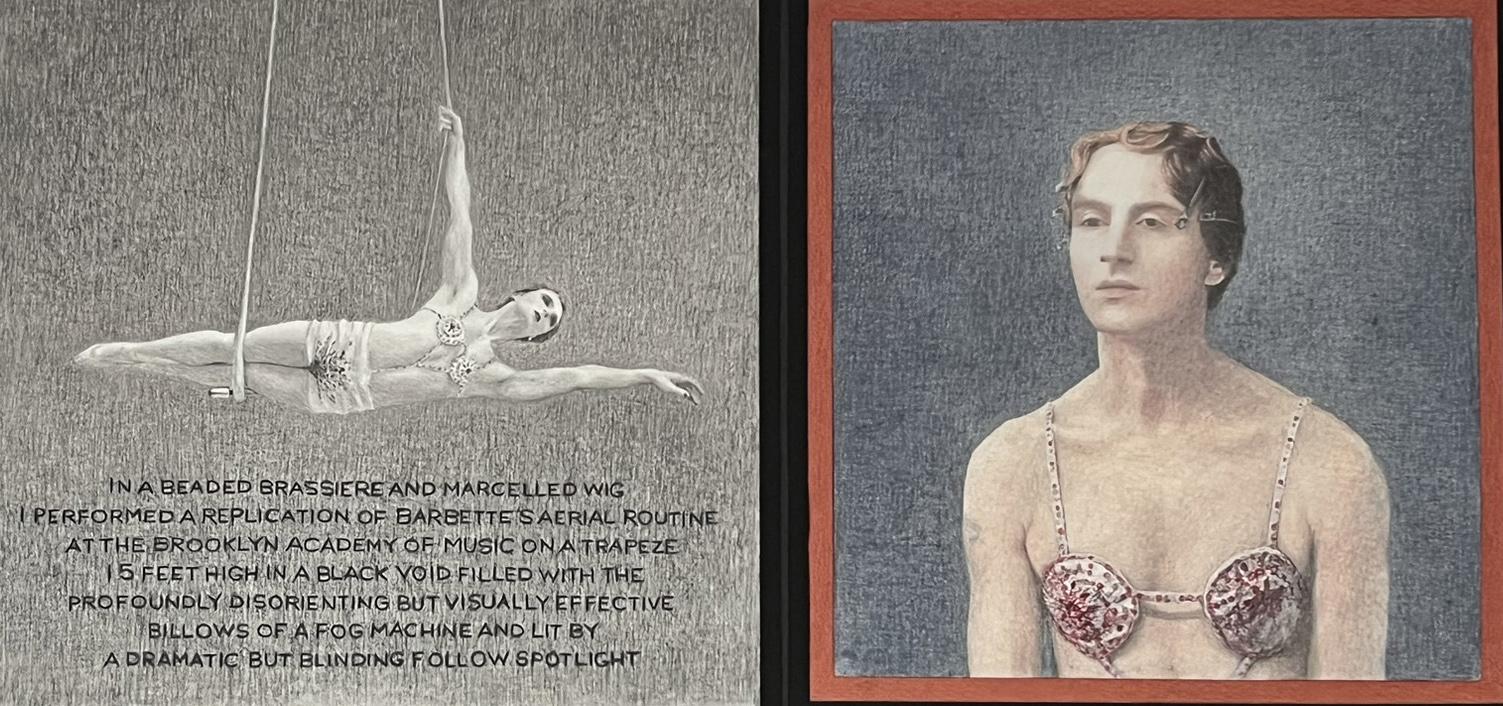 IN A BEADED BRASSIERE AND MARCELLED WIG
I PERFORMED A REPLICATION OF BARBETTE'S AERIAL ROUTINE
AT THE BROOKLYN ACADEMY OF MUSIC ON A TRAPEZE
15 FEET HIGH IN A BLACK VOID FILLED WITH THE
PROFOUNDLY DISORIENTING BUT VISUALLY EFFECTIVE
BILLOWS OF A FOG MACHINE AND LIT BY
A DRAMATIC BUT BLINDING FOLLOW SPOTLIGHT